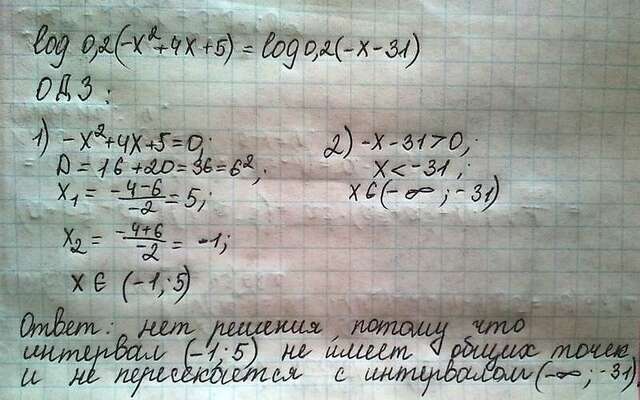 log 0,2(-x²+4x+5) = log 0,2(-x-31)
ОДЗ:
1) -x²+4x+5=0;
D=16+20=36=6²;
x₁ = (-4-6)/(-2) = 5;
x₂ = (-4+6)/(-2) = -1;
x ∈ (-1;5)
2) -x-31>0;
x<-31;
x∈(-∞;-31)
Ответ: нет решения потому что
интервал (-1;5) не имеет общих точек
и не пересекается с интервалом (-∞;-31)